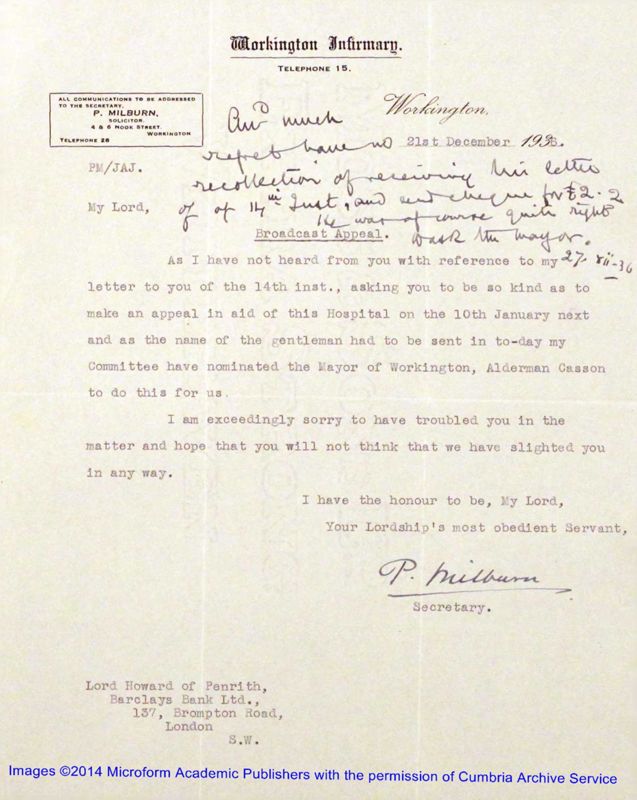 Workington Infirmary.
TELEPHONE 15.
ALL COMMUNICATIONS TO BE ADDRESSED
TO THE SECRETARY,
P. MILBURN,
SOLICITOR,
4 & 6 NOOK STREET,
WORKINGTON
TELEPHONE 28
Workington,
21st December 1936.
PM/JAJ.
Ansd much
regret have no
recollection of receiving his letter
of of 14th Inst, and send cheque for £2.2
He was of course quite right
to ask the mayor.
27.xii-36
My Lord,
Broadcast Appeal.
As I have not heard from you with reference to my
letter to you of the 14th inst., asking you to be so kind as to
make an appeal in aid of this Hospital on the 10th January next
and as the name of the gentleman had to be sent in to-day my
Committee have nominated the Mayor of Workington, Alderman Casson
to do this for us.
I am exceedingly sorry to have troubled you in the
matter and hope that you will not think that we have slighted you
in any way.
I have the honour to be, My Lord,
Your Lordship's most obedient Servant,
P. Milburn
Secretary.
Lord Howard of Penrith,
Barclays Bank Ltd.,
137, Brompton Road,
London
S.W.
Images ©2014 Microform Academic Publishers with the permission of Cumbria Archive Service